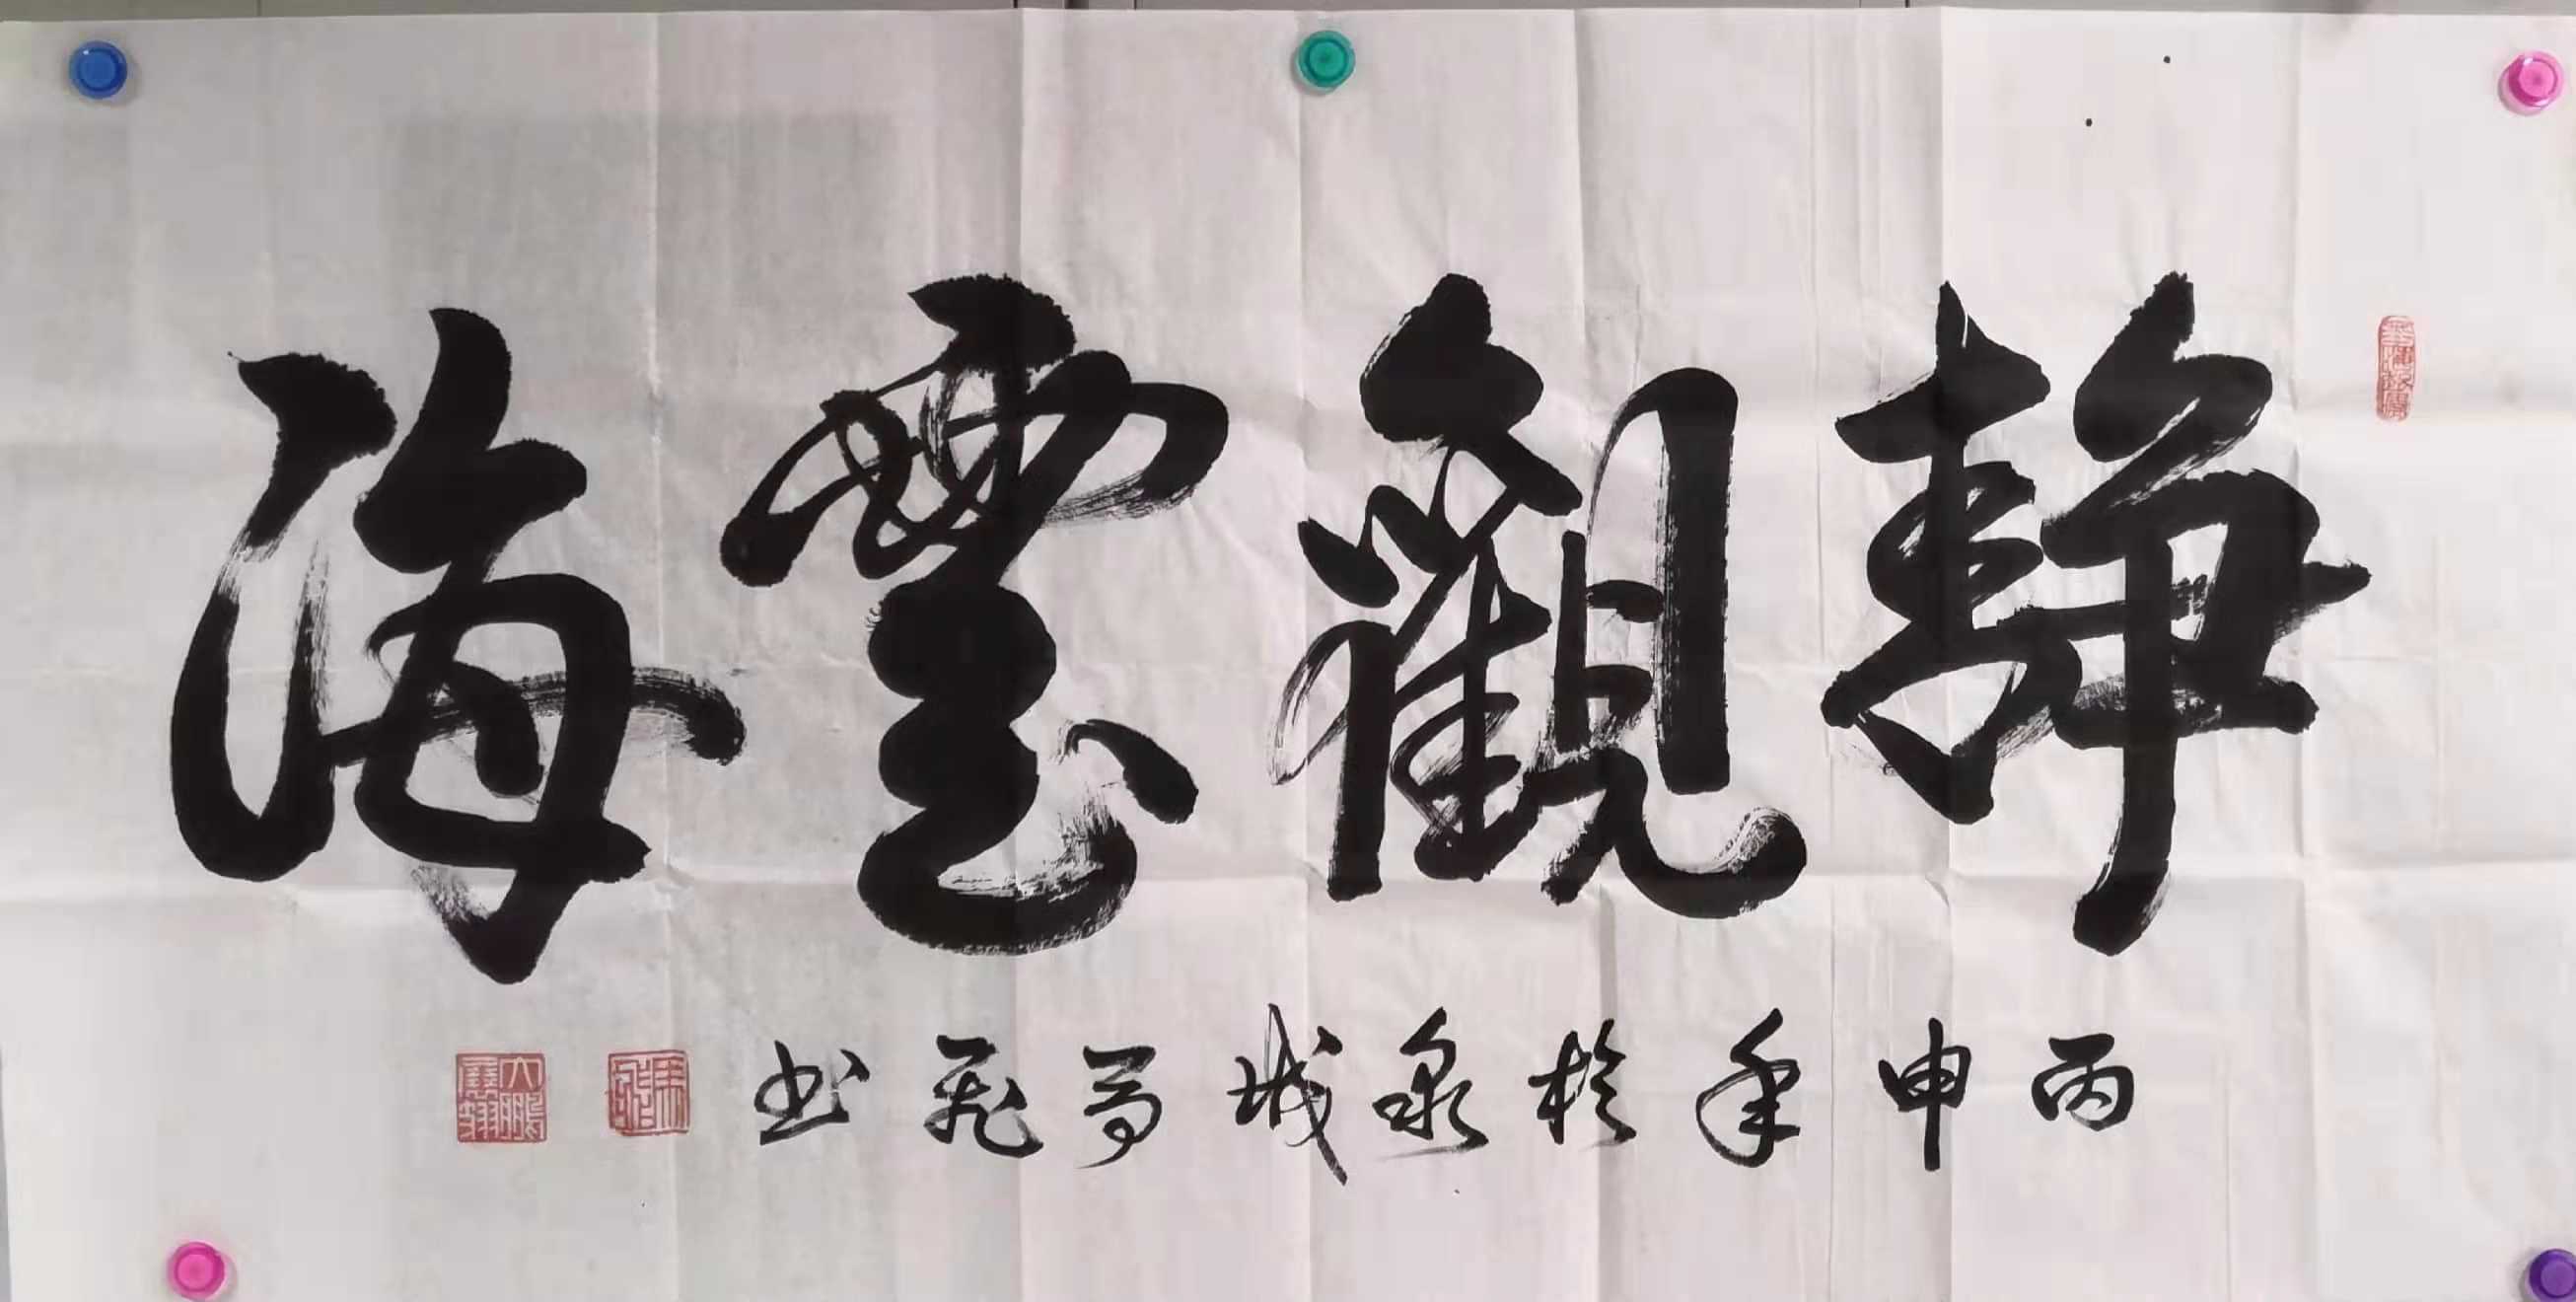 静觀雲海
丙申年於泉城
飛书
大鵬展翅